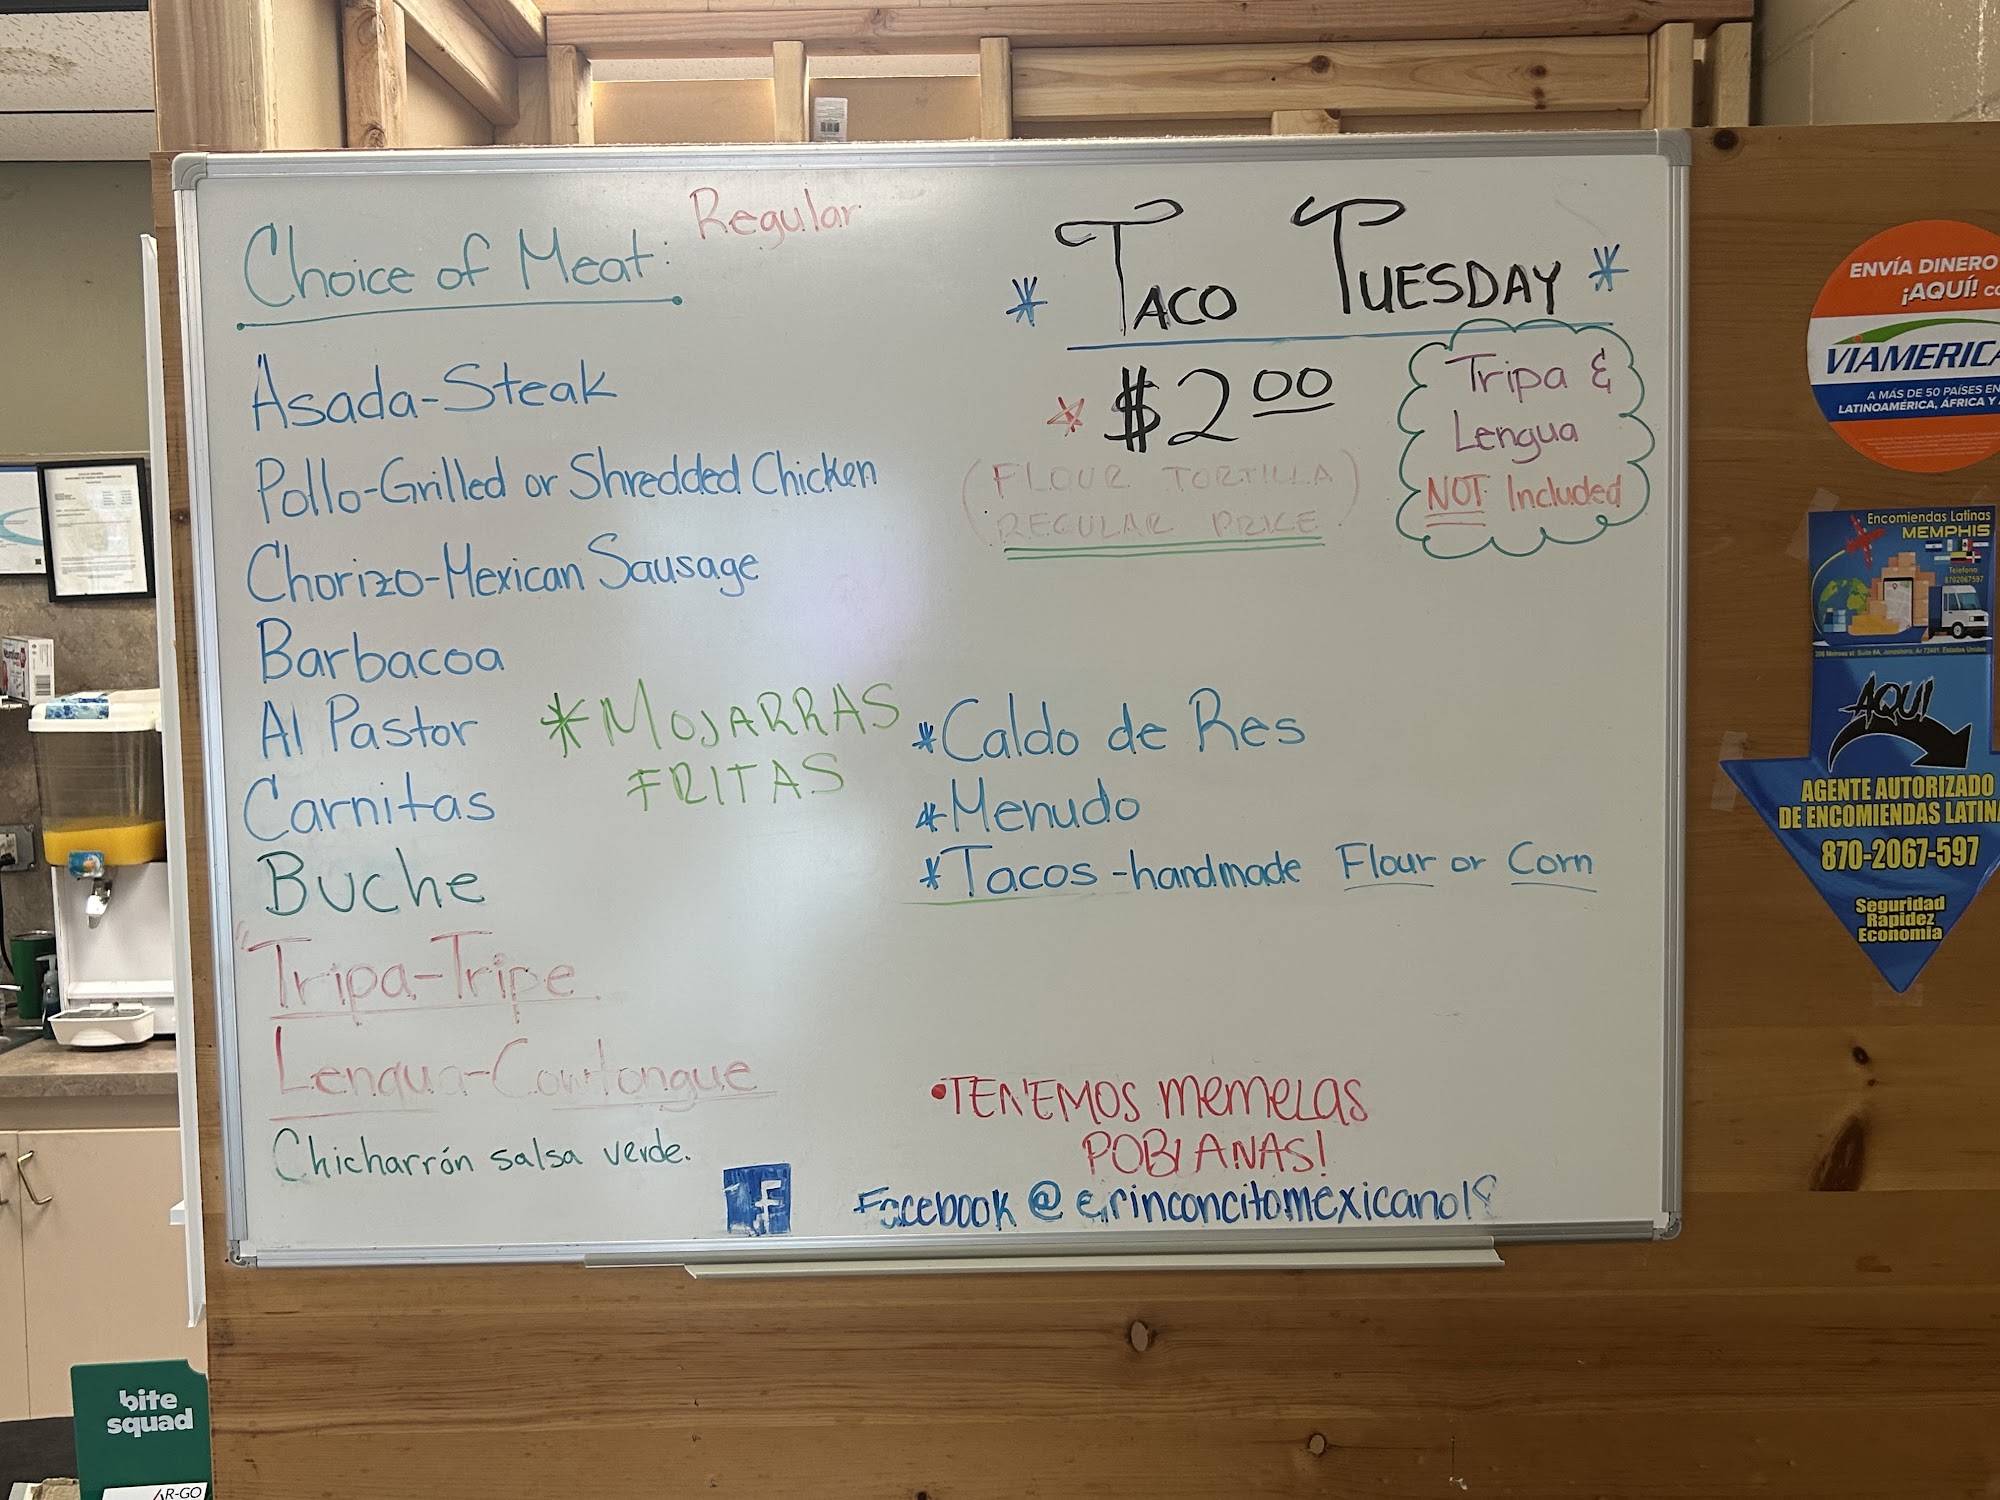 Regular
Choice of Meat:
Asada-Steak
Pollo-Grilled or Shredded Chicken
Chorizo-Mexican Sausage
Barbacoa
Al Pastor
Carnitas
Buche
Tripa-Tripe
Lengua-Cowtongue
Chicharrón salsa verde.
*MOJARRAS
FRITAS
* TACO TUESDAY *
$2.00
(FLOUR TORTILLA)
(REGULAR PRICE)
Tripa &
Lengua
NOT Included
*Caldo de Res
*Menudo
*Tacos-handmade Flour or Corn
•TENEMOS MEMELAS
POBLANAS!
f
Facebook @
ENVÍA DINERO
¡AQUÍ!
VIAMERICA
A MÁS DE 50 PAÍSES EN
LATINOAMÉRICA, ÁFRICA Y
Encomiendas Latinas
MEMPHIS
Telefono
8702067597
AQUI
AGENTE AUTORIZADO
DE ENCOMIENDAS
870-2067-597
Seguridad
Rapidez
Economia
bite
squad
AR-GO